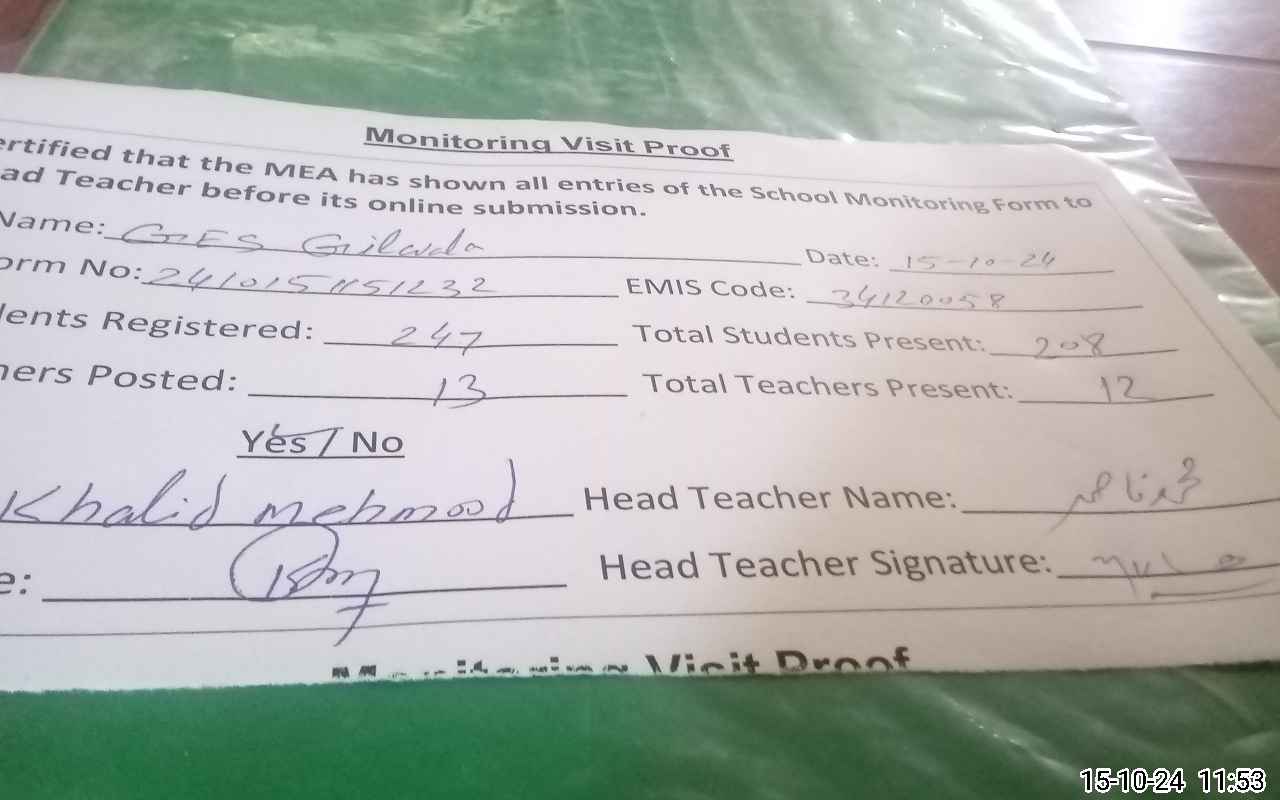 Monitoring Visit Proof
ertified that the MEA has shown all entries of the School Monitoring Form to
ad Teacher before its online submission.
Name: GES Gilwala Date: 15-10-24
orm No: 2410151151232 EMIS Code: 34120058
dents Registered: 247 Total Students Present: 208
hers Posted: 13 Total Teachers Present: 12
Yes / No
Khalid Mehmood Head Teacher Name:
e: Head Teacher Signature:
Monitoring Visit Proof
15-10-24 11:53